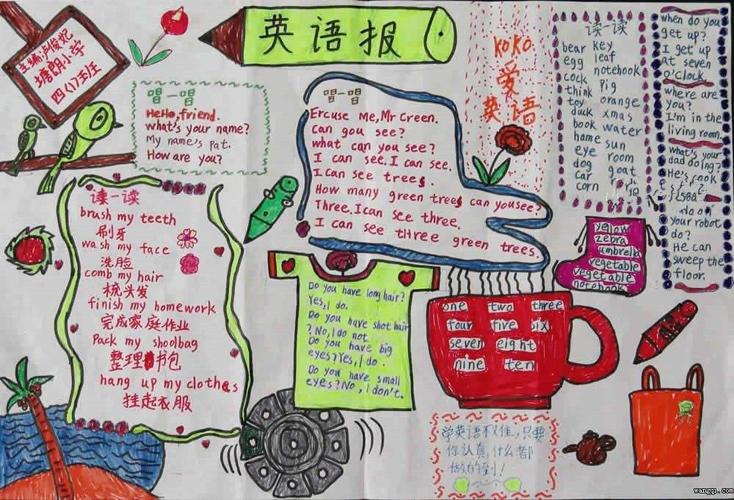 英语报
塘朗小学
四(1)班
唱一唱
Hello, friend.
what's your name?
My name's Pat.
How are you?
唱一唱
Excuse me, Mr Green.
Can you see?
what can you see?
I can see. I can see.
I can see trees.
How many green trees can you see?
Three. I can see three.
I can see three green trees.
KOKO
爱
英语
读一读
bear key
egg leaf
cock notebook
think pig
toy orange
duck xmas
book water
home sun
eye room
dog goat
car
corn
when do you
get up?
I get up
at seven
o'clock.
where are
you?
I'm in the
living room.
what's your
dad doing?
He's cook
do
your robot
do?
He can
sweep the
floor.
读一读
brush my teeth
刷牙
wash my face
洗脸
comb my hair
梳头发
finish my homework
完成家庭作业
Pack my shoolbag
整理书包
hang up my clothes
挂起衣服
Do you have long hair?
Yes, I do.
Do you have shot hair
? No, I do not.
Do you have big
eyes? Yes, I do.
Do you have small
eyes? No, I don't.
one two three
four five six
seven eight
nine ten
yellow
zebra
umbrella
vegetable
vegetable
notebook
学英语不难，只要
你认真，什么都
做的到！
wangpp.com